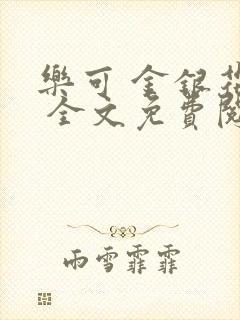 樂可 金銀花
全文免費閱
雨雪霏霏